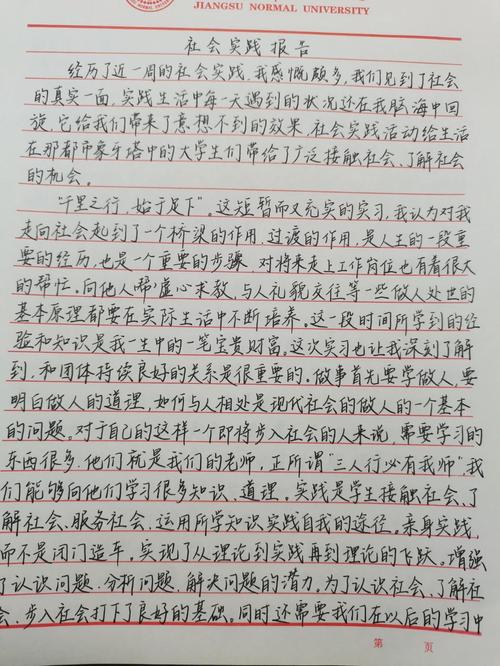 JIANGSU NORMAL UNIVERSITY
社会实践报告
经历了近一周的社会实践，我感慨颇多，我们见到了社会
的真实一面，实践生活中每一天遇到的状况还在我脑海中回
旋，它给我们带来了意想不到的效果，社会实践活动给生活
在那都市象牙塔中的大学生们带给了广泛接触社会、了解社会
的机会。
“千里之行，始于足下”。这短暂而又充实的实习，我认为对我
走向社会起到了一个桥梁的作用，过渡的作用，是人生的一段重
要的经历，也是一个重要的步骤，对将来走上工作岗位也有着很大
的帮忙。向他人虚心求教，与人礼貌交往等一些做人处世的
基本原理都要在实际生活中不断培养。这一段时间所学到的经
验和知识是我一生中的一笔宝贵财富。这次实习也让我深刻了解
到，和团体持续良好的关系是很重要的。做事首先要学做人，要
明白做人的道理，如何与人相处是现代社会的做人的一个基本
的问题。对于自己的这样一个即将步入社会的人来说，需要学习的
东西很多，他们就是我们的老师，正所谓“三人行必有我师”，我
们能够向他们学习很多知识、道理。实践是学生接触社会、了
解社会、服务社会，运用所学知识实践自我的途径。亲身实践，
而不是闭门造车。实现了从理论到实践再到理论的飞跃。增强
了认识问题，分析问题，解决问题的潜力。为了认识社会、了解社
会、步入社会打下了良好的基础。同时还需要我们在以后的学习中
第 页